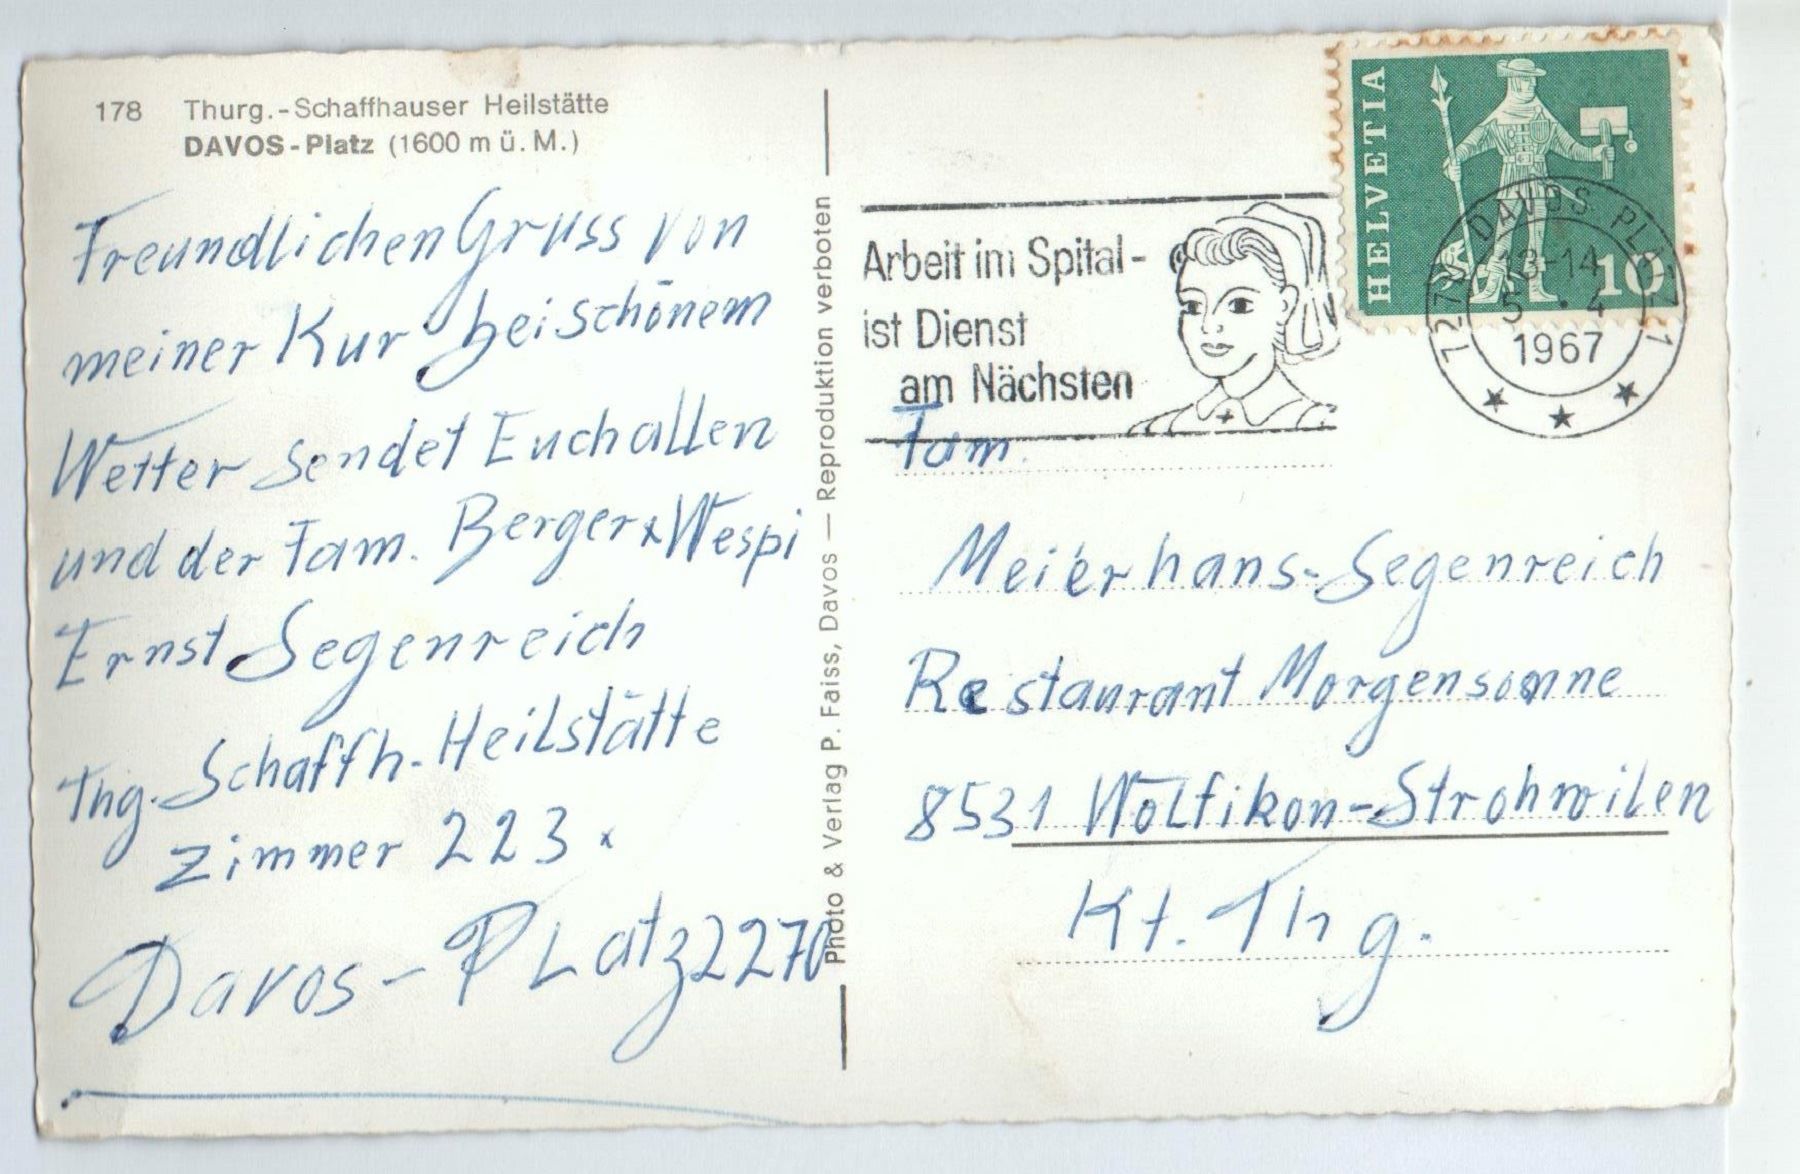 178 Thurg.-Schaffhauser Heilstätte
DAVOS-Platz (1600 m ü. M.)
Freundlichen Gruss von
meiner Kur bei schönem
Wetter sendet Euch allen
und der Fam. Berger x Wespi
Ernst Segenreich
Thg. Schaffh. Heilstätte
Zimmer 223.
Davos - Platz 2270
Photo & Verlag P. Faiss, Davos — Reproduktion verboten
Arbeit im Spital-
ist Dienst
am Nächsten
HELVETIA
10
7270 DAVOS PLATZ 1
13-14
5 • 4
1967
Fam.
Meierhans-Segenreich
Restaurant Morgensonne
8531 Wolfikon-Strohwilen
Kt. Thg.